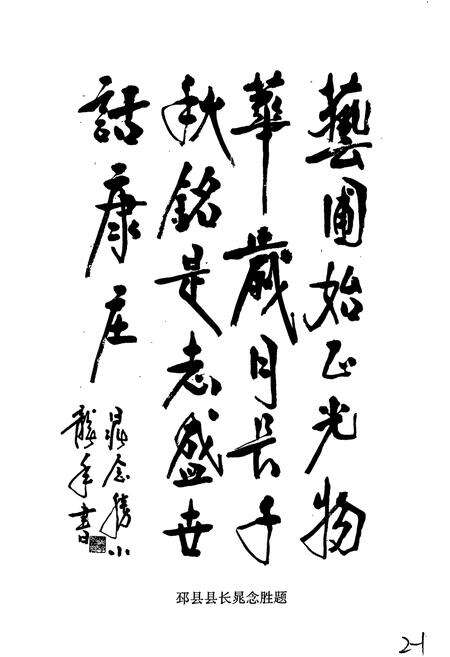 藝圃始正光物
華歲月長千
秋銘是志盛世
話康庄
晁念勝小
龍年書
邳县县长晁念胜题
2-1